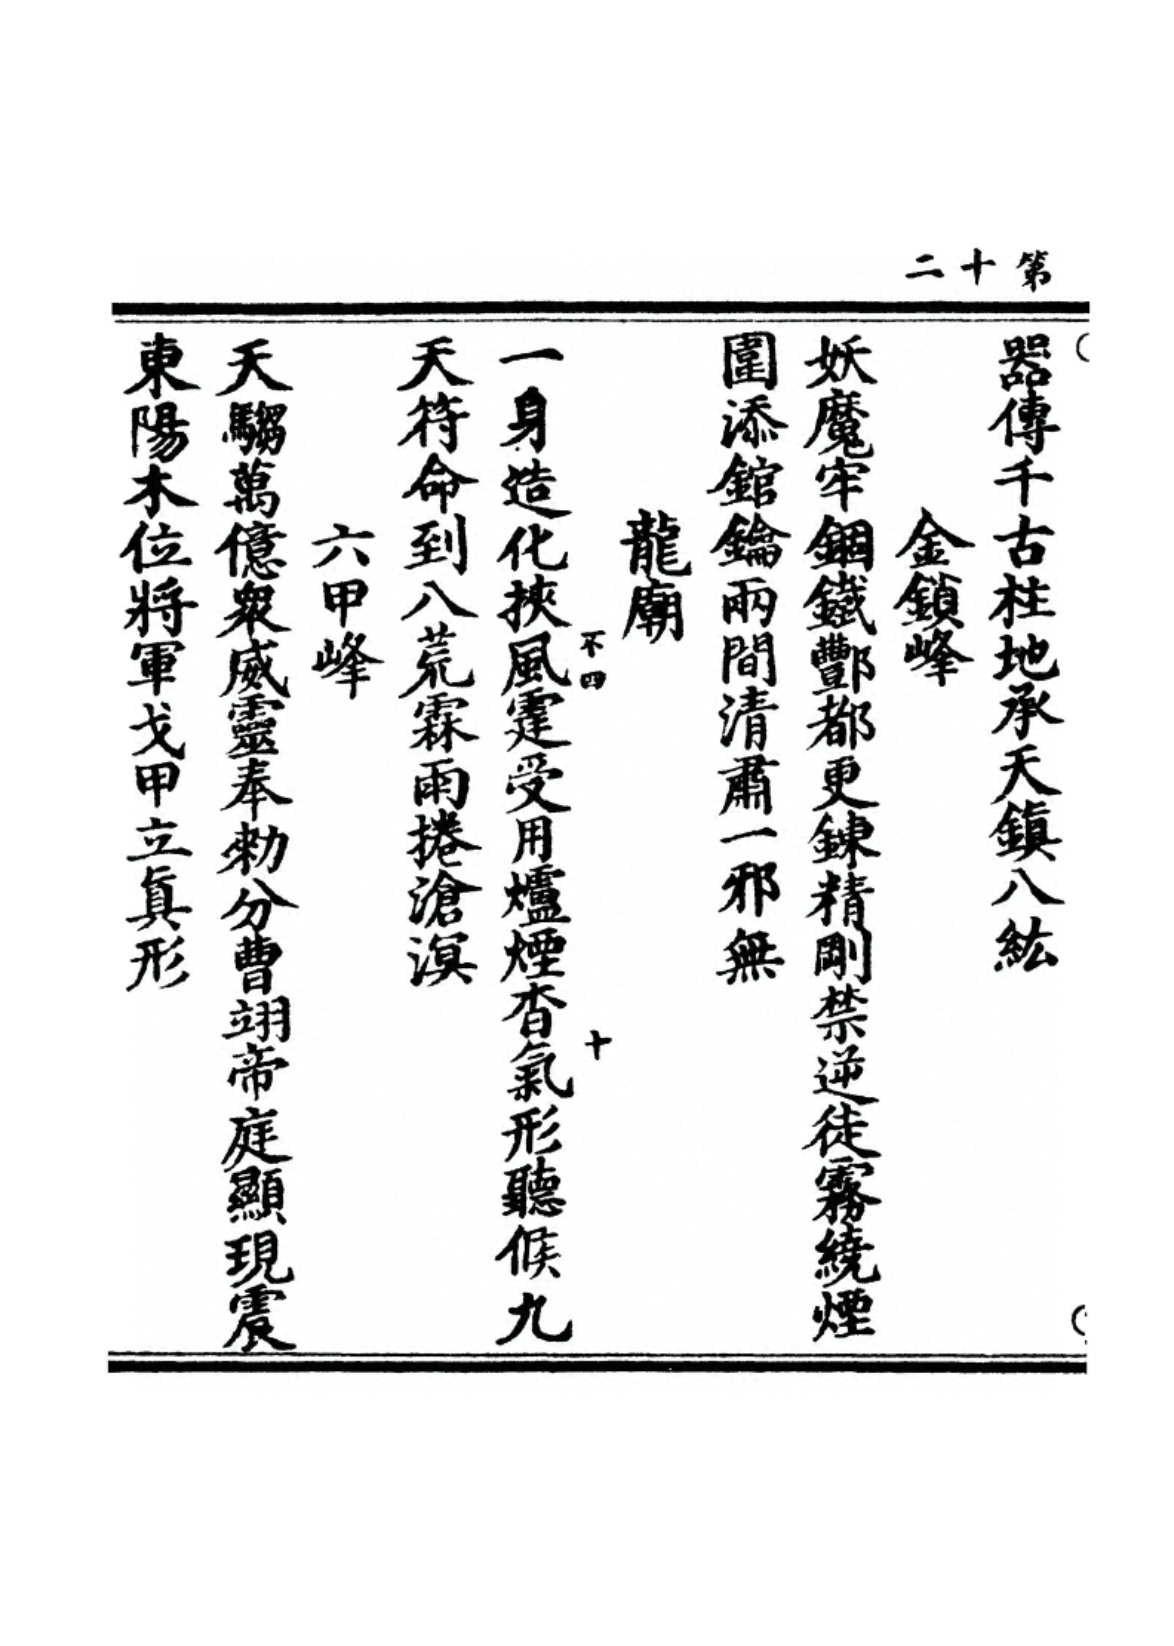 第十二
器傳千古柱地承天鎮八紘
金鎖峰
妖魔牢錮鐵酆都更鍊精剛禁逆徒霧繞煙
圍添錧鑰兩間清肅一邪無
龍廟
不四
十
一身造化挾風霆受用爐煙杳氣形聽候九
天符命到八荒霖雨捲滄溟
六甲峰
天騶萬億衆威靈奉勑分曹翊帝庭顯現震
東陽木位將軍戈甲立眞形